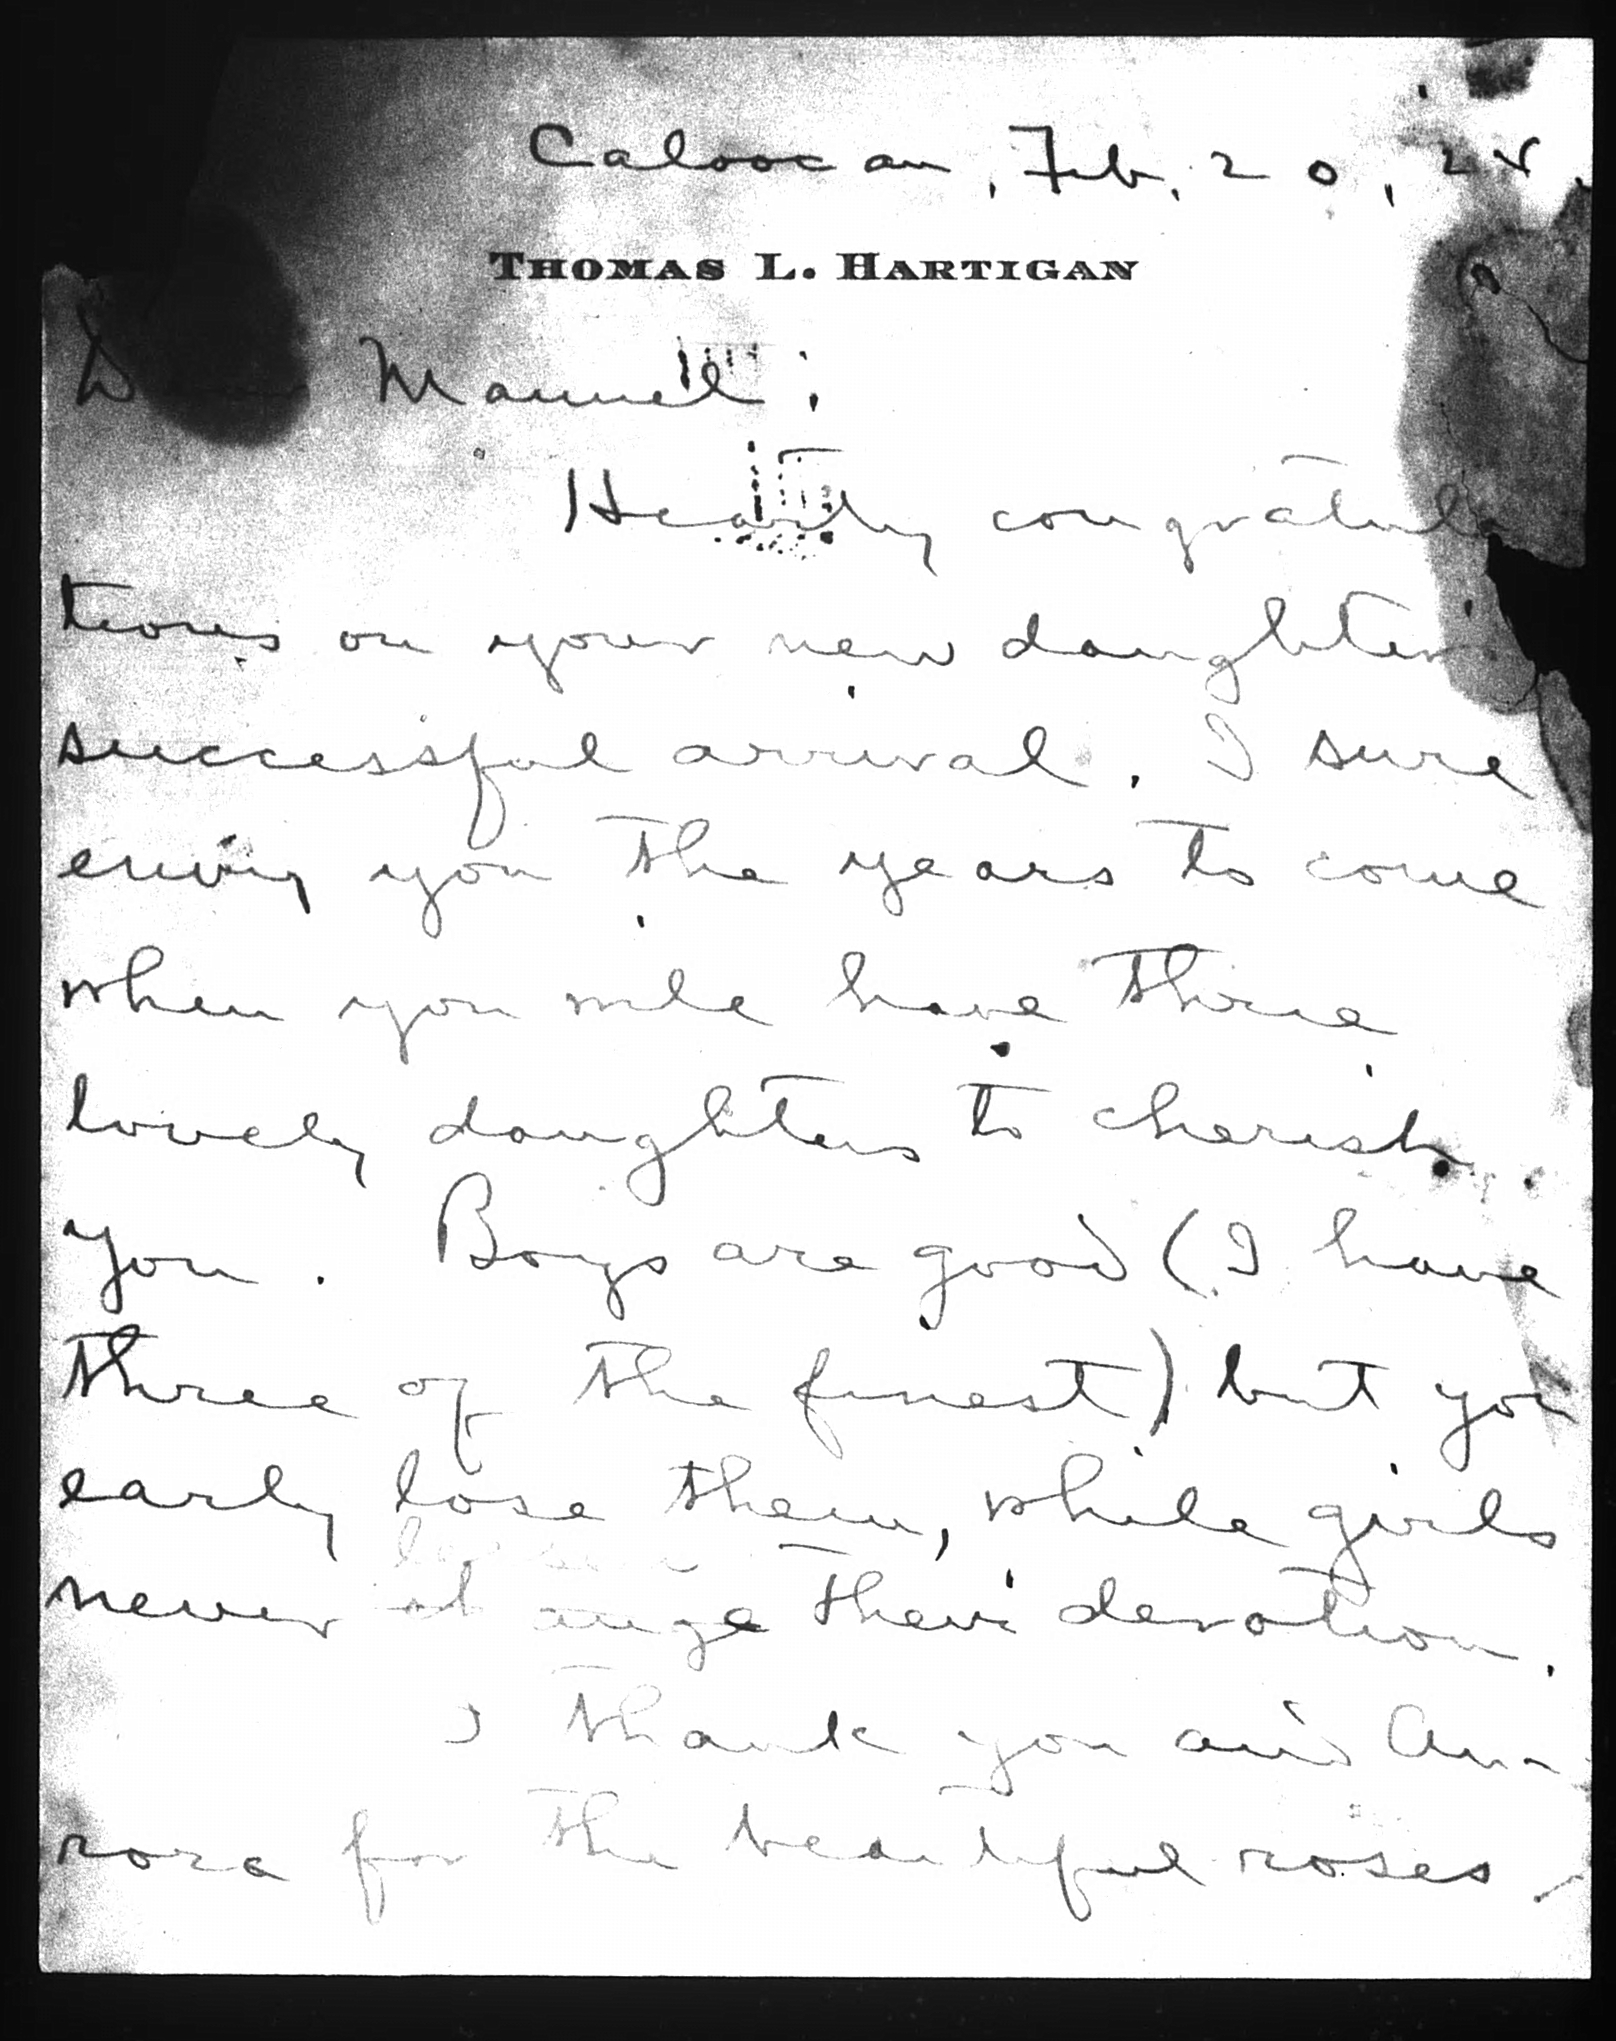 Caloocan, Feb. 20, 24.
THOMAS L. HARTIGAN
Dear Manuel:
Hearty congratula
tions on your new daughter's
successful arrival. I sure
envy you the years to come
when you will have three
lovely daughters to cherish
you. Boys are good (I have
three of the finest) but you
early lose them, while girls
never change their devotion.
I thank you and Au-
rora for the beautiful roses